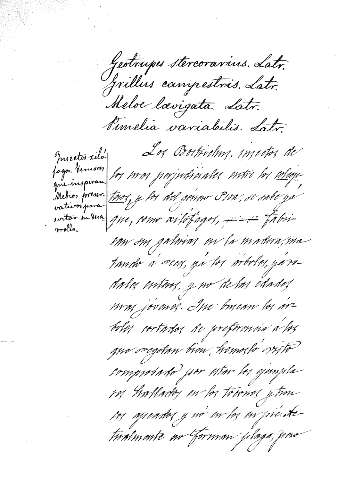 Geotrupes stercorarius. Latr.
Grillus campestris. Latr.
Meloe lævigata Latr.
Pimelia variabilis. Latr.
Insectos xiló
fagos. Temores
que inspiran.
Medios preser
vativos para
evitar su desa
rrollo.
Los Bostrichus, insectos de
los mas perjudiciales entre los coleop
teros, y los del género se sabe yá
que, como xilófagos, fabri
can sus galerias en la madera, ma
tando á veces, yá los arboles, yá ra
dales enteros, y no de las edades
mas jóvenes. Que buscan los ár
boles cortados de preferencia á los
que vegetan bien, hemoslo visto
comprobado por estar los ejempla
res hallados en los tocones y tron
cos apeados y nó en los en pié. Ac
tualmente no forman plaga, pero